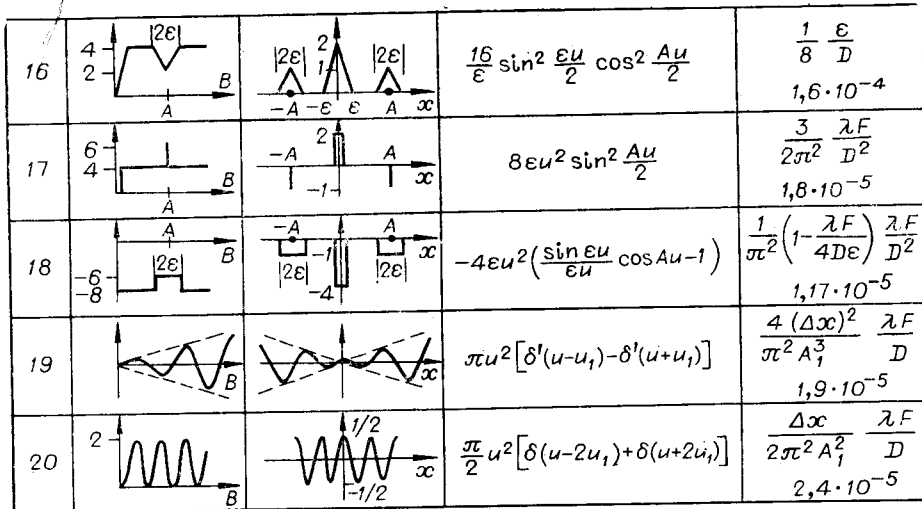 16
4
2
|2ε|
A
B
|2ε|
2
1
|2ε|
-A
-ε
ε
A
x
16/ε sin² εu/2 cos² Au/2
1/8 ε/D
1,6·10⁻⁴
17
6
4
A
B
-A
2
A
-1
x
8εu² sin² Au/2
3/2π² λF/D²
1,8·10⁻⁵
18
A
B
-6
-8
|2ε|
-A
A
x
-1
|2ε|
|2ε|
-4
-4εu²(sin εu/εu cos Au-1)
1/π² (1-λF/4Dε) λF/D²
1,17·10⁻⁵
19
B
x
πu²[δ'(u-u₁)-δ'(u+u₁)]
4(Δx)²/π²A₁³ λF/D
1,9·10⁻⁵
20
2
B
1/2
x
-1/2
π/2 u²[δ(u-2u₁)+δ(u+2u₁)]
Δx/2π²A₁² λF/D
2,4·10⁻⁵